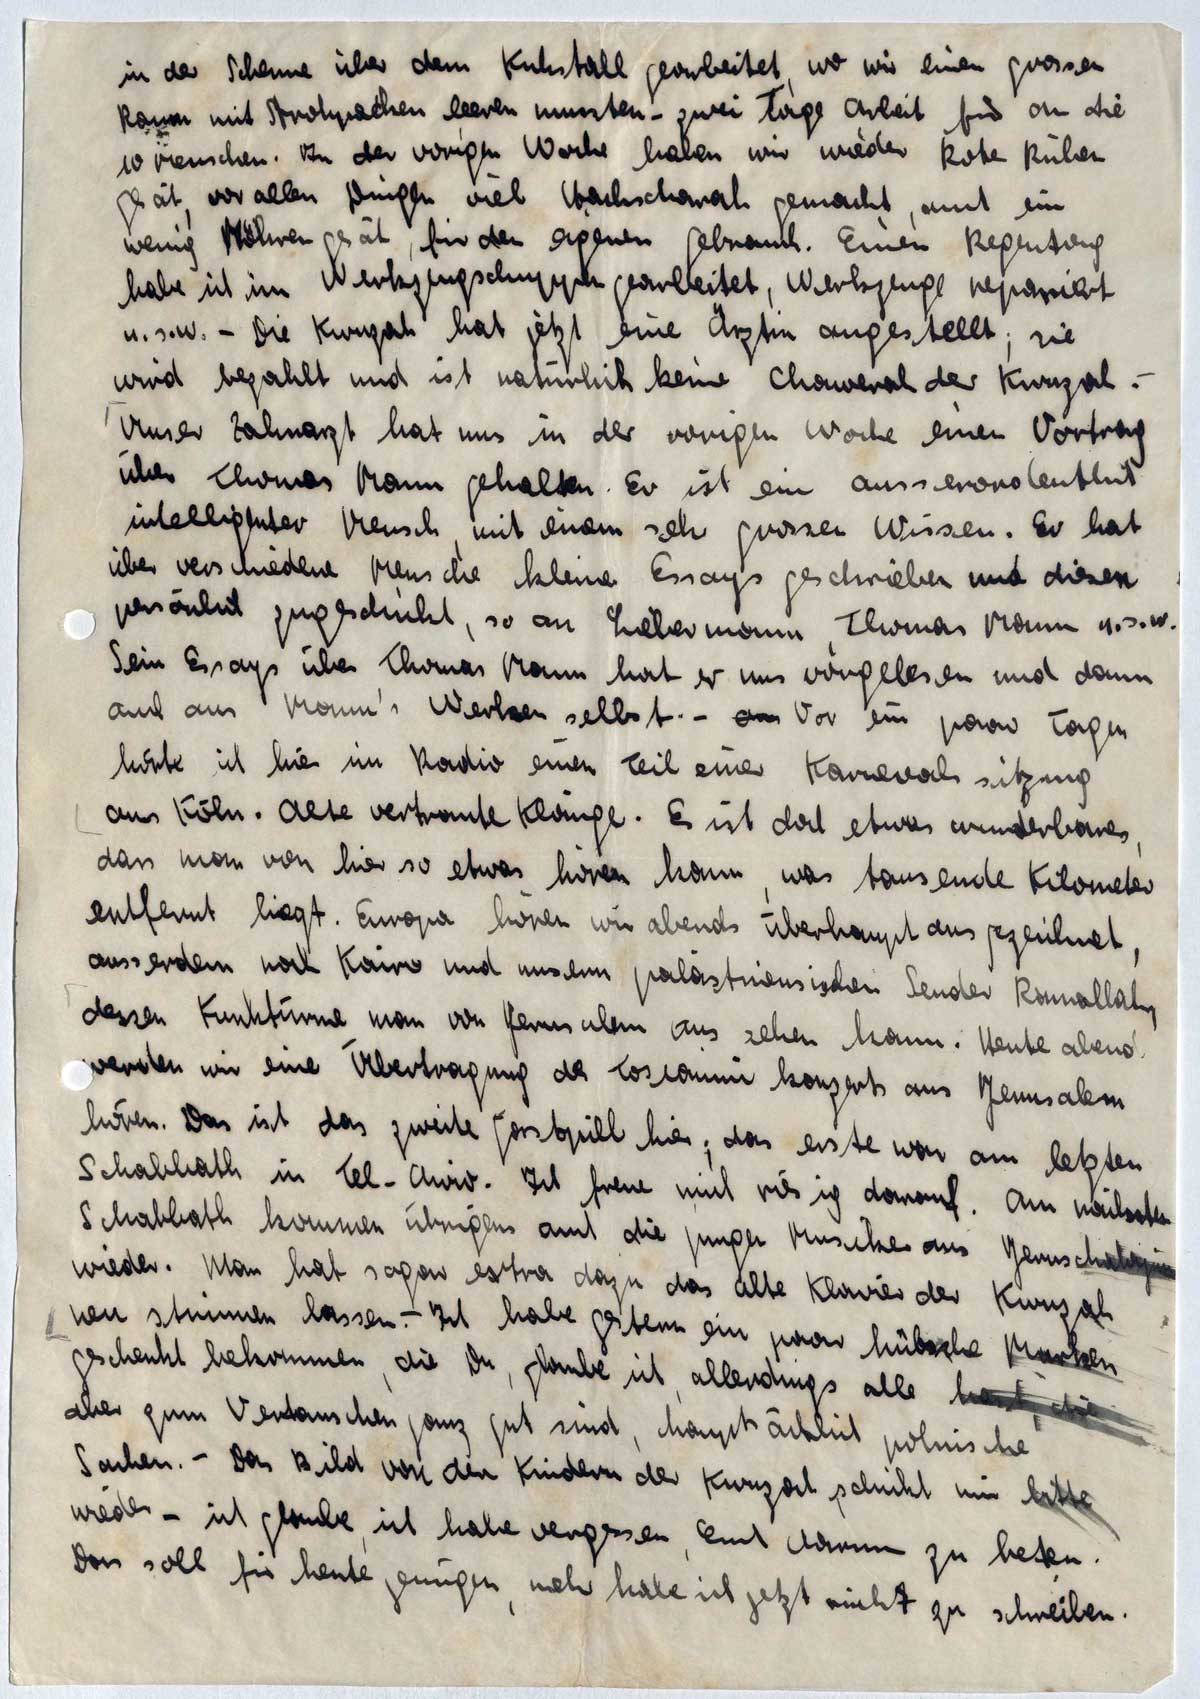 in der Scheune über dem Kuhstall gearbeitet, wo wir einen grossen
Raum mit Strohpacken leeren mussten - zwei Tage Arbeit für an die
10 Menschen. In der vorigen Woche haben wir wieder Rote Rüben
gesät, vor allen Dingen viel gemacht, auch ein
wenig Möhren gesät, für den eigenen Gebrauch. Einen Regentag
habe ich im Werkzeugschuppen gearbeitet, Werkzeuge repariert
u.s.w. - Die Kwuzah hat jetzt eine Ärztin angestellt; sie
wird bezahlt und ist natürlich keine Chawerah der Kwuzah. -
Unser Zahnarzt hat uns in der vorigen Woche einen Vortrag
über Thomas Mann gehalten. Er ist ein ausserordentlich
intelligenter Mensch, mit einem sehr grossen Wissen. Er hat
über verschiedene Menschen kleine Essays geschrieben und diesen
persönlich zugeschickt, so an Liebermann, Thomas Mann u.s.w.
Sein Essays über Thomas Mann hat er uns vorgelesen und dann
auch aus Mann's Werken selbst. - Vor ein paar Tagen
hörte ich hier im Radio einen Teil einer Karnevalssitzung
aus Köln. Alte vertraute Klänge. Es ist doch etwas wunderbares,
dass man von hier so etwas hören kann, was tausende Kilometer
entfernt liegt. Europa hören wir abends überhaupt ausgezeichnet,
ausserdem noch Kairo und unsern palästinensischen Sender Ramallah,
dessen Funktürme man von Jerusalem aus sehen kann. Heute abend
werden wir eine Übertragung des Toscanini konzerts aus Jerusalem
hören. Das ist das zweite Gastspiel hier; das erste war am letzten
Schabbath in Tel-Awiw. Ich freue mich riesig darauf. Am nächsten
Schabbath kommen übrigens auch die jungen Musiker aus Jeruschalajim
wieder. Man hat sogar extra dazu das alte Klavier der Kwuzah
neu stimmen lassen. - Ich habe gestern ein paar hübsche Marken
geschenkt bekommen, die Du, glaube ich, allerdings alle hast, die
aber zum Vertauschen ganz gut sind, hauptsächlich polnische
Sachen. - Das Bild von den Kindern der Kwuzah schickt mir bitte
wieder - ich glaube, ich habe vergessen, Euch darum zu beten.
Das soll für heute genügen, mehr habe ich jetzt nicht zu schreiben.